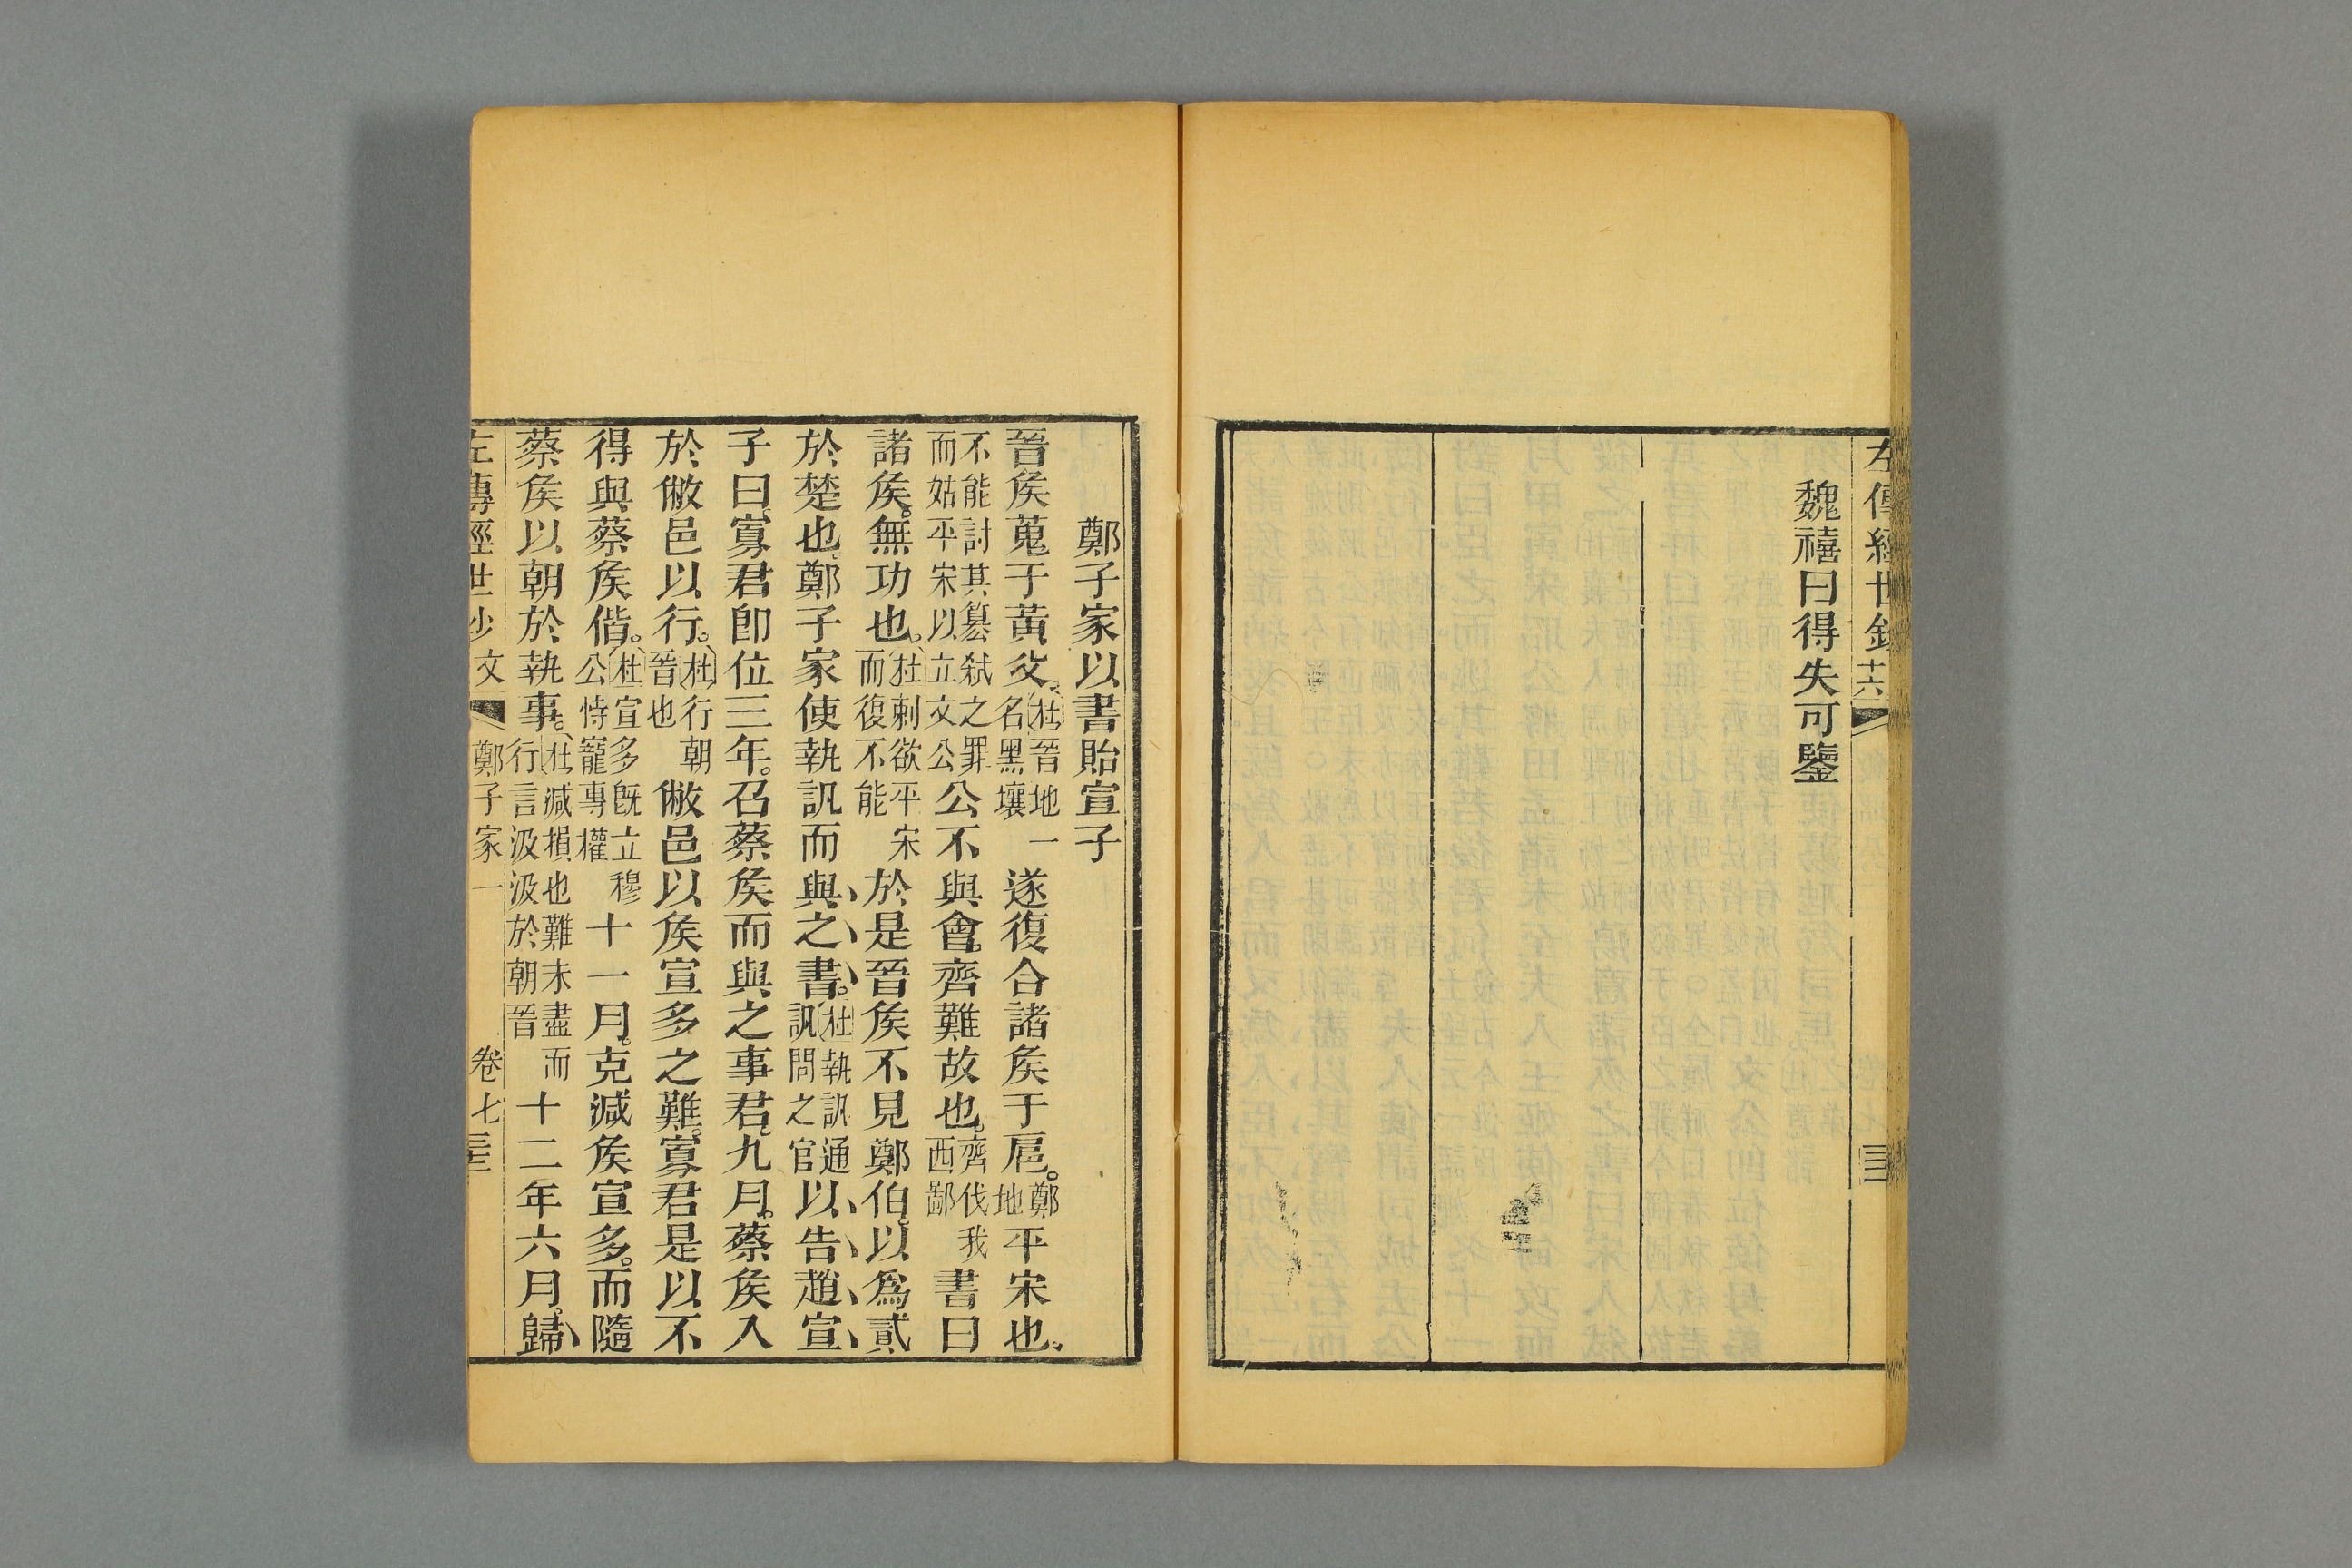 左傳經世鈔 十六
魏禧曰得失可鑒
鄭子家以書貽宣子
晉矦蒐于黃父杜晉地一名黑壤遂復合諸矦于扈鄭地平宋也
不能討其簒弒之罪而姑平宋以立文公公不與會齊難故也齊伐我西鄙書曰
諸矦無功也杜刺欲平宋而復不能於是晉矦不見鄭伯以爲貳
於楚也鄭子家使執訊而與之書杜執訊通訊問之官以告趙宣
子曰寡君卽位三年召蔡矦而與之事君九月蔡矦入
於敝邑以行杜行朝晉也敝邑以矦宣多之難寡君是以不
得與蔡矦偕杜宣多旣立穆公恃寵專權十一月克減矦宣多而隨
蔡矦以朝於執事杜減損也難未盡而行言汲汲於朝晉十二年六月歸
左傳經世鈔 文 鄭子家一 卷七